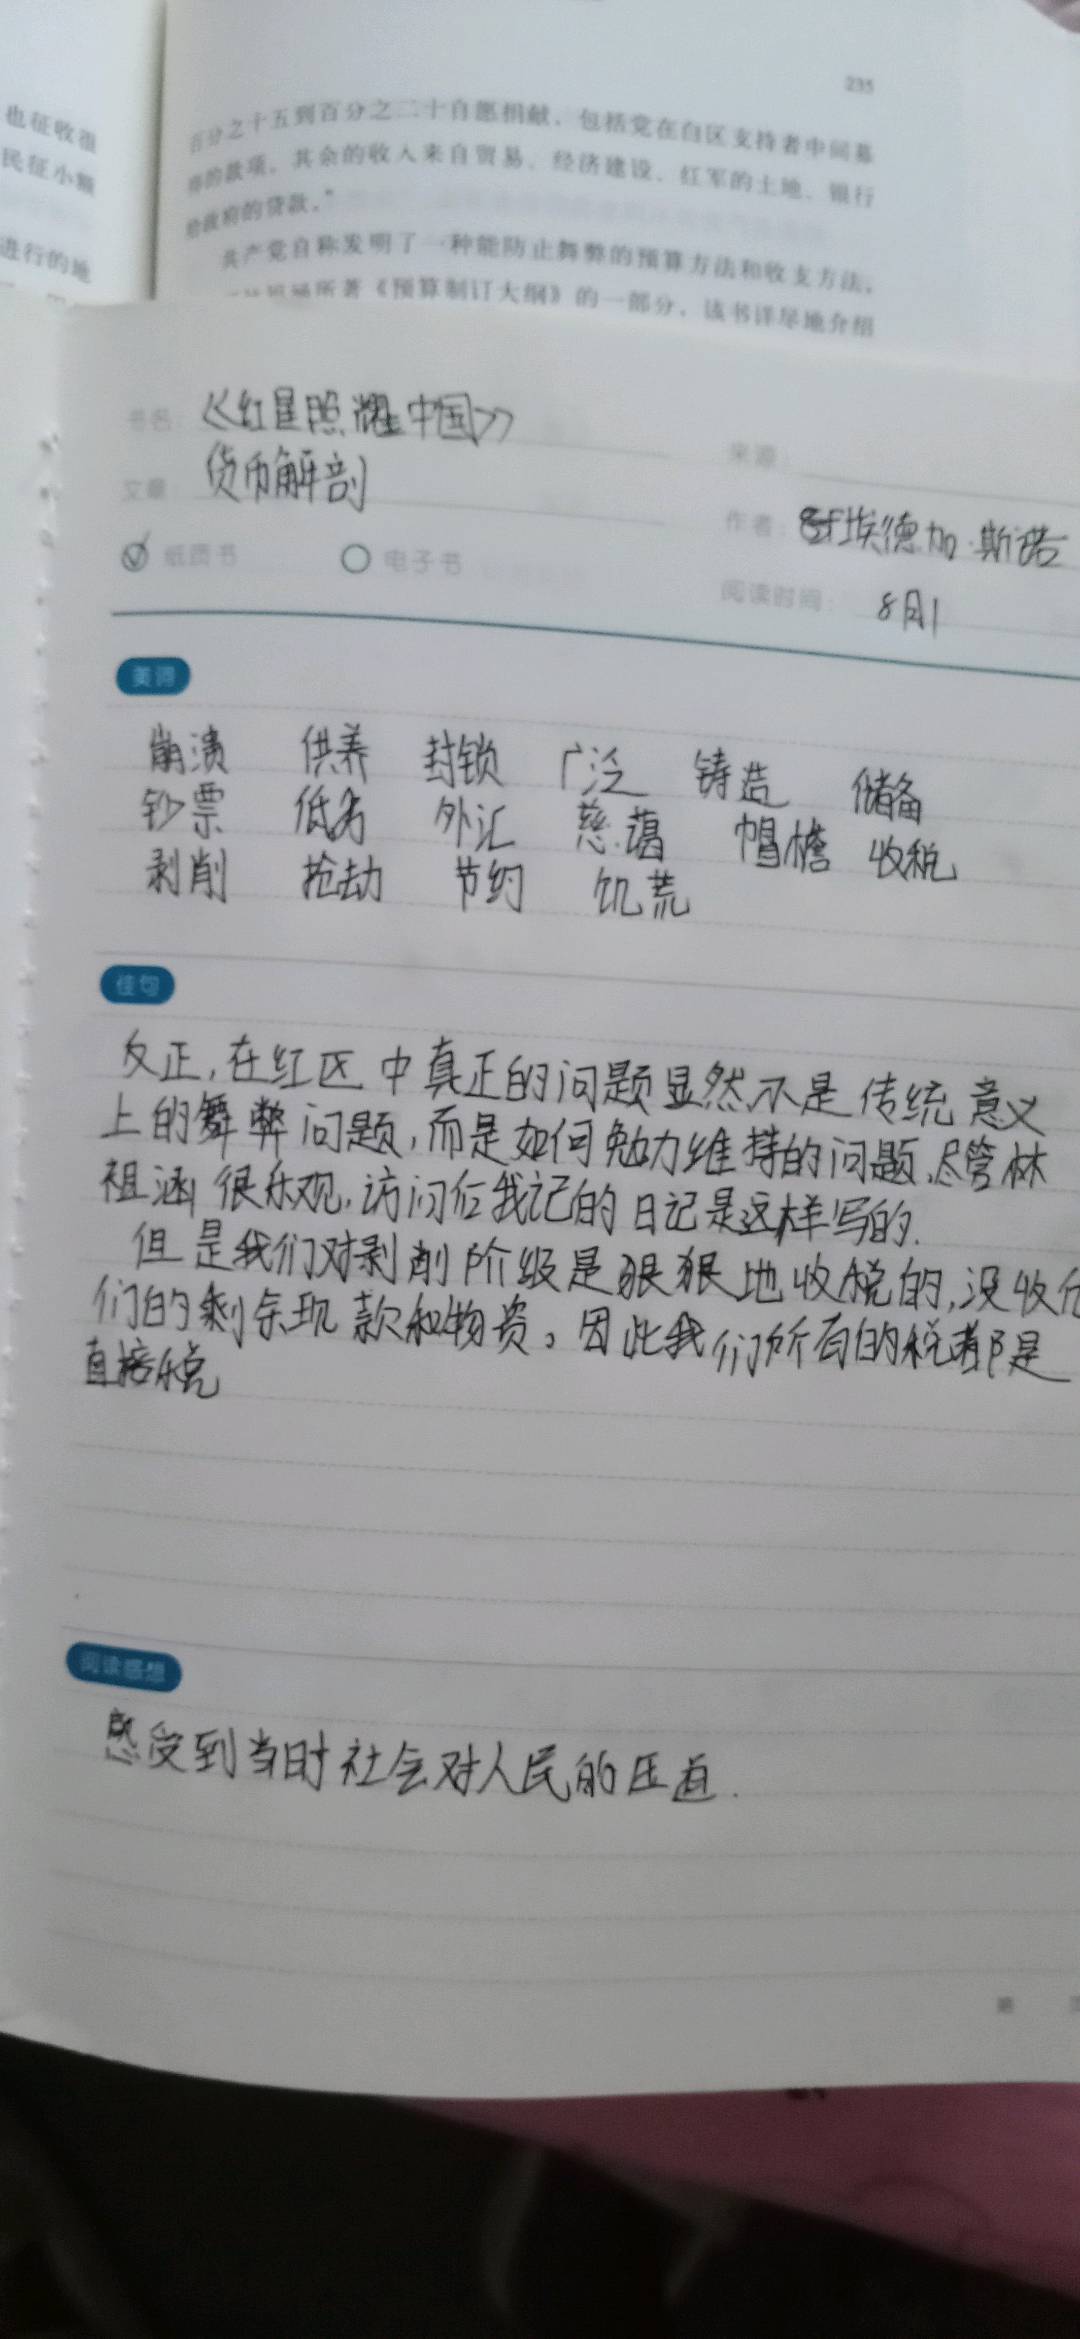 也征收很
民征小额
进行的地
235
百分之十五到百分之二十自愿捐献，包括党在白区支持者中间募
得的款项。其余的收入来自贸易、经济建设、红军的土地、银行
给政府的贷款。”
共产党自称发明了一种能防止舞弊的预算方法和收支方法。
所著《预算制订大纲》的一部分，该书详尽地介绍
书名：《红星照耀中国》
来源：
文章 货币解剖
作者：埃德加·斯诺
纸质书 电子书
阅读时间： 8月1
美词
崩溃 供养 封锁 广泛 铸造 储备
钞票 低劣 外汇 慈蔼 帽檐 收税
剥削 抢劫 节约 饥荒
佳句
反正，在红区中真正的问题显然不是传统意义
上的舞弊问题，而是如何勉力维持的问题，尽管林
祖涵很乐观，访问后我记的日记是这样写的.
但是我们对剥削阶级是狠狠地收税的，没收他
们的剩余现款和物资。因此我们所有的税都是
直接税
阅读感想
感受到当时社会对人民的压迫.
第 页